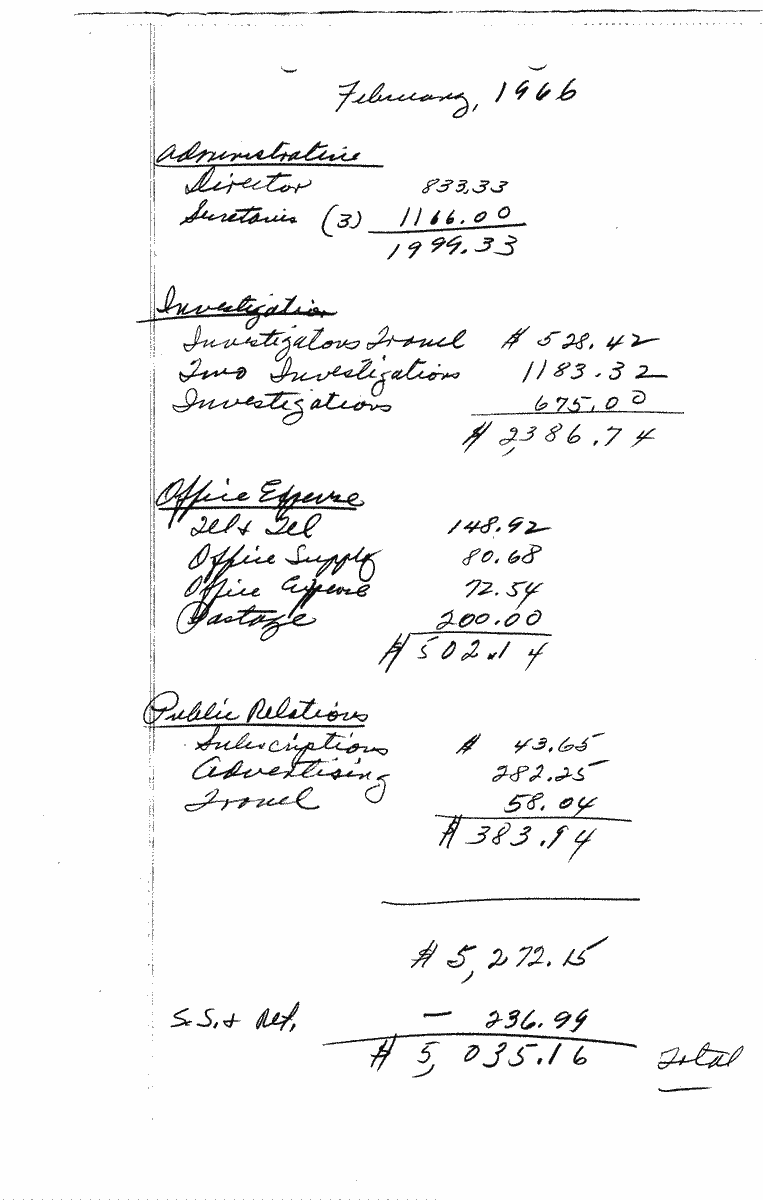 February, 1966
Administrative
Director 833.33
Secretaries (3) 1166.00
1999.33
Investigation
Investigators Travel $ 528.42
Two Investigations 1183.32
Investigations 675.00
$ 2,386.74
Office Expense
Tel & Tel 148.92
Office Supply 80.68
Office Expense 72.54
Postage 200.00
$ 502.14
Public Relations
Subscriptions $ 43.65
Advertising 282.25
Travel 58.04
$ 383.94
$ 5,272.15
S.S. & Ret. – 236.99
$ 5,035.16 Total